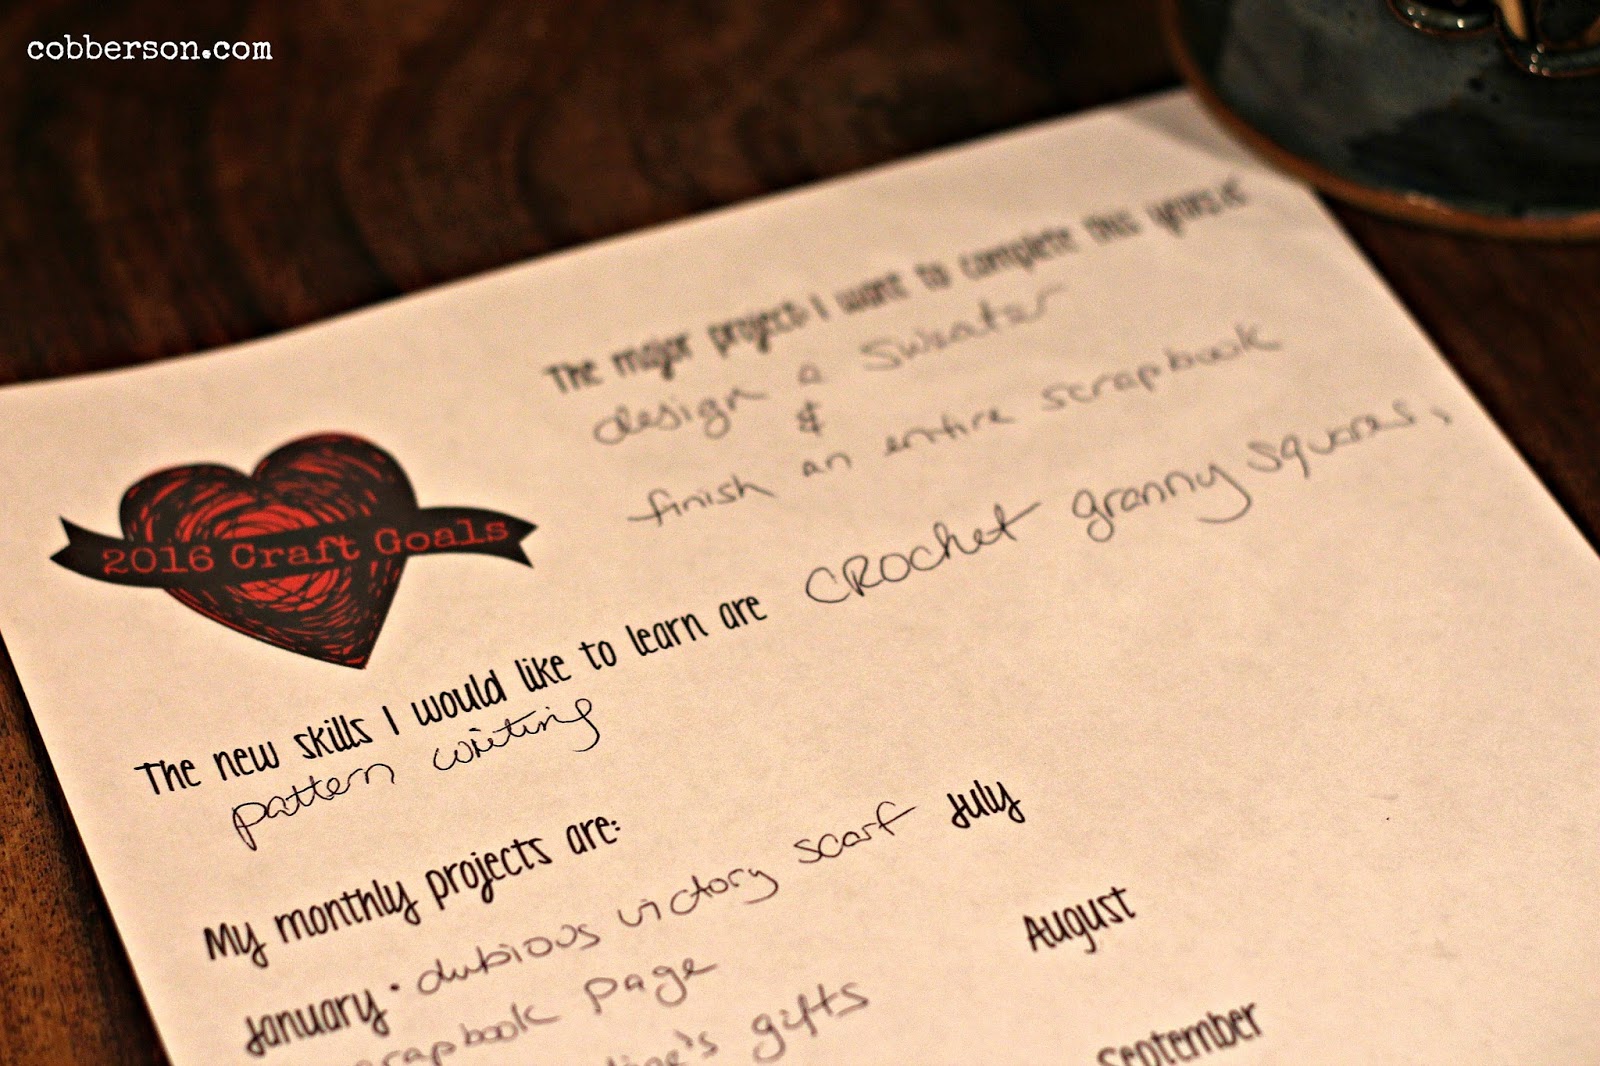 cobberson.com
The major project I want to complete this year is
design a sweater
&
finish an entire scrapbook
2016 Craft Goals
The new skills I would like to learn are crochet granny squares,
pattern writing
My monthly projects are:
January · dubious victory scarf July
scrapbook page August
gifts September